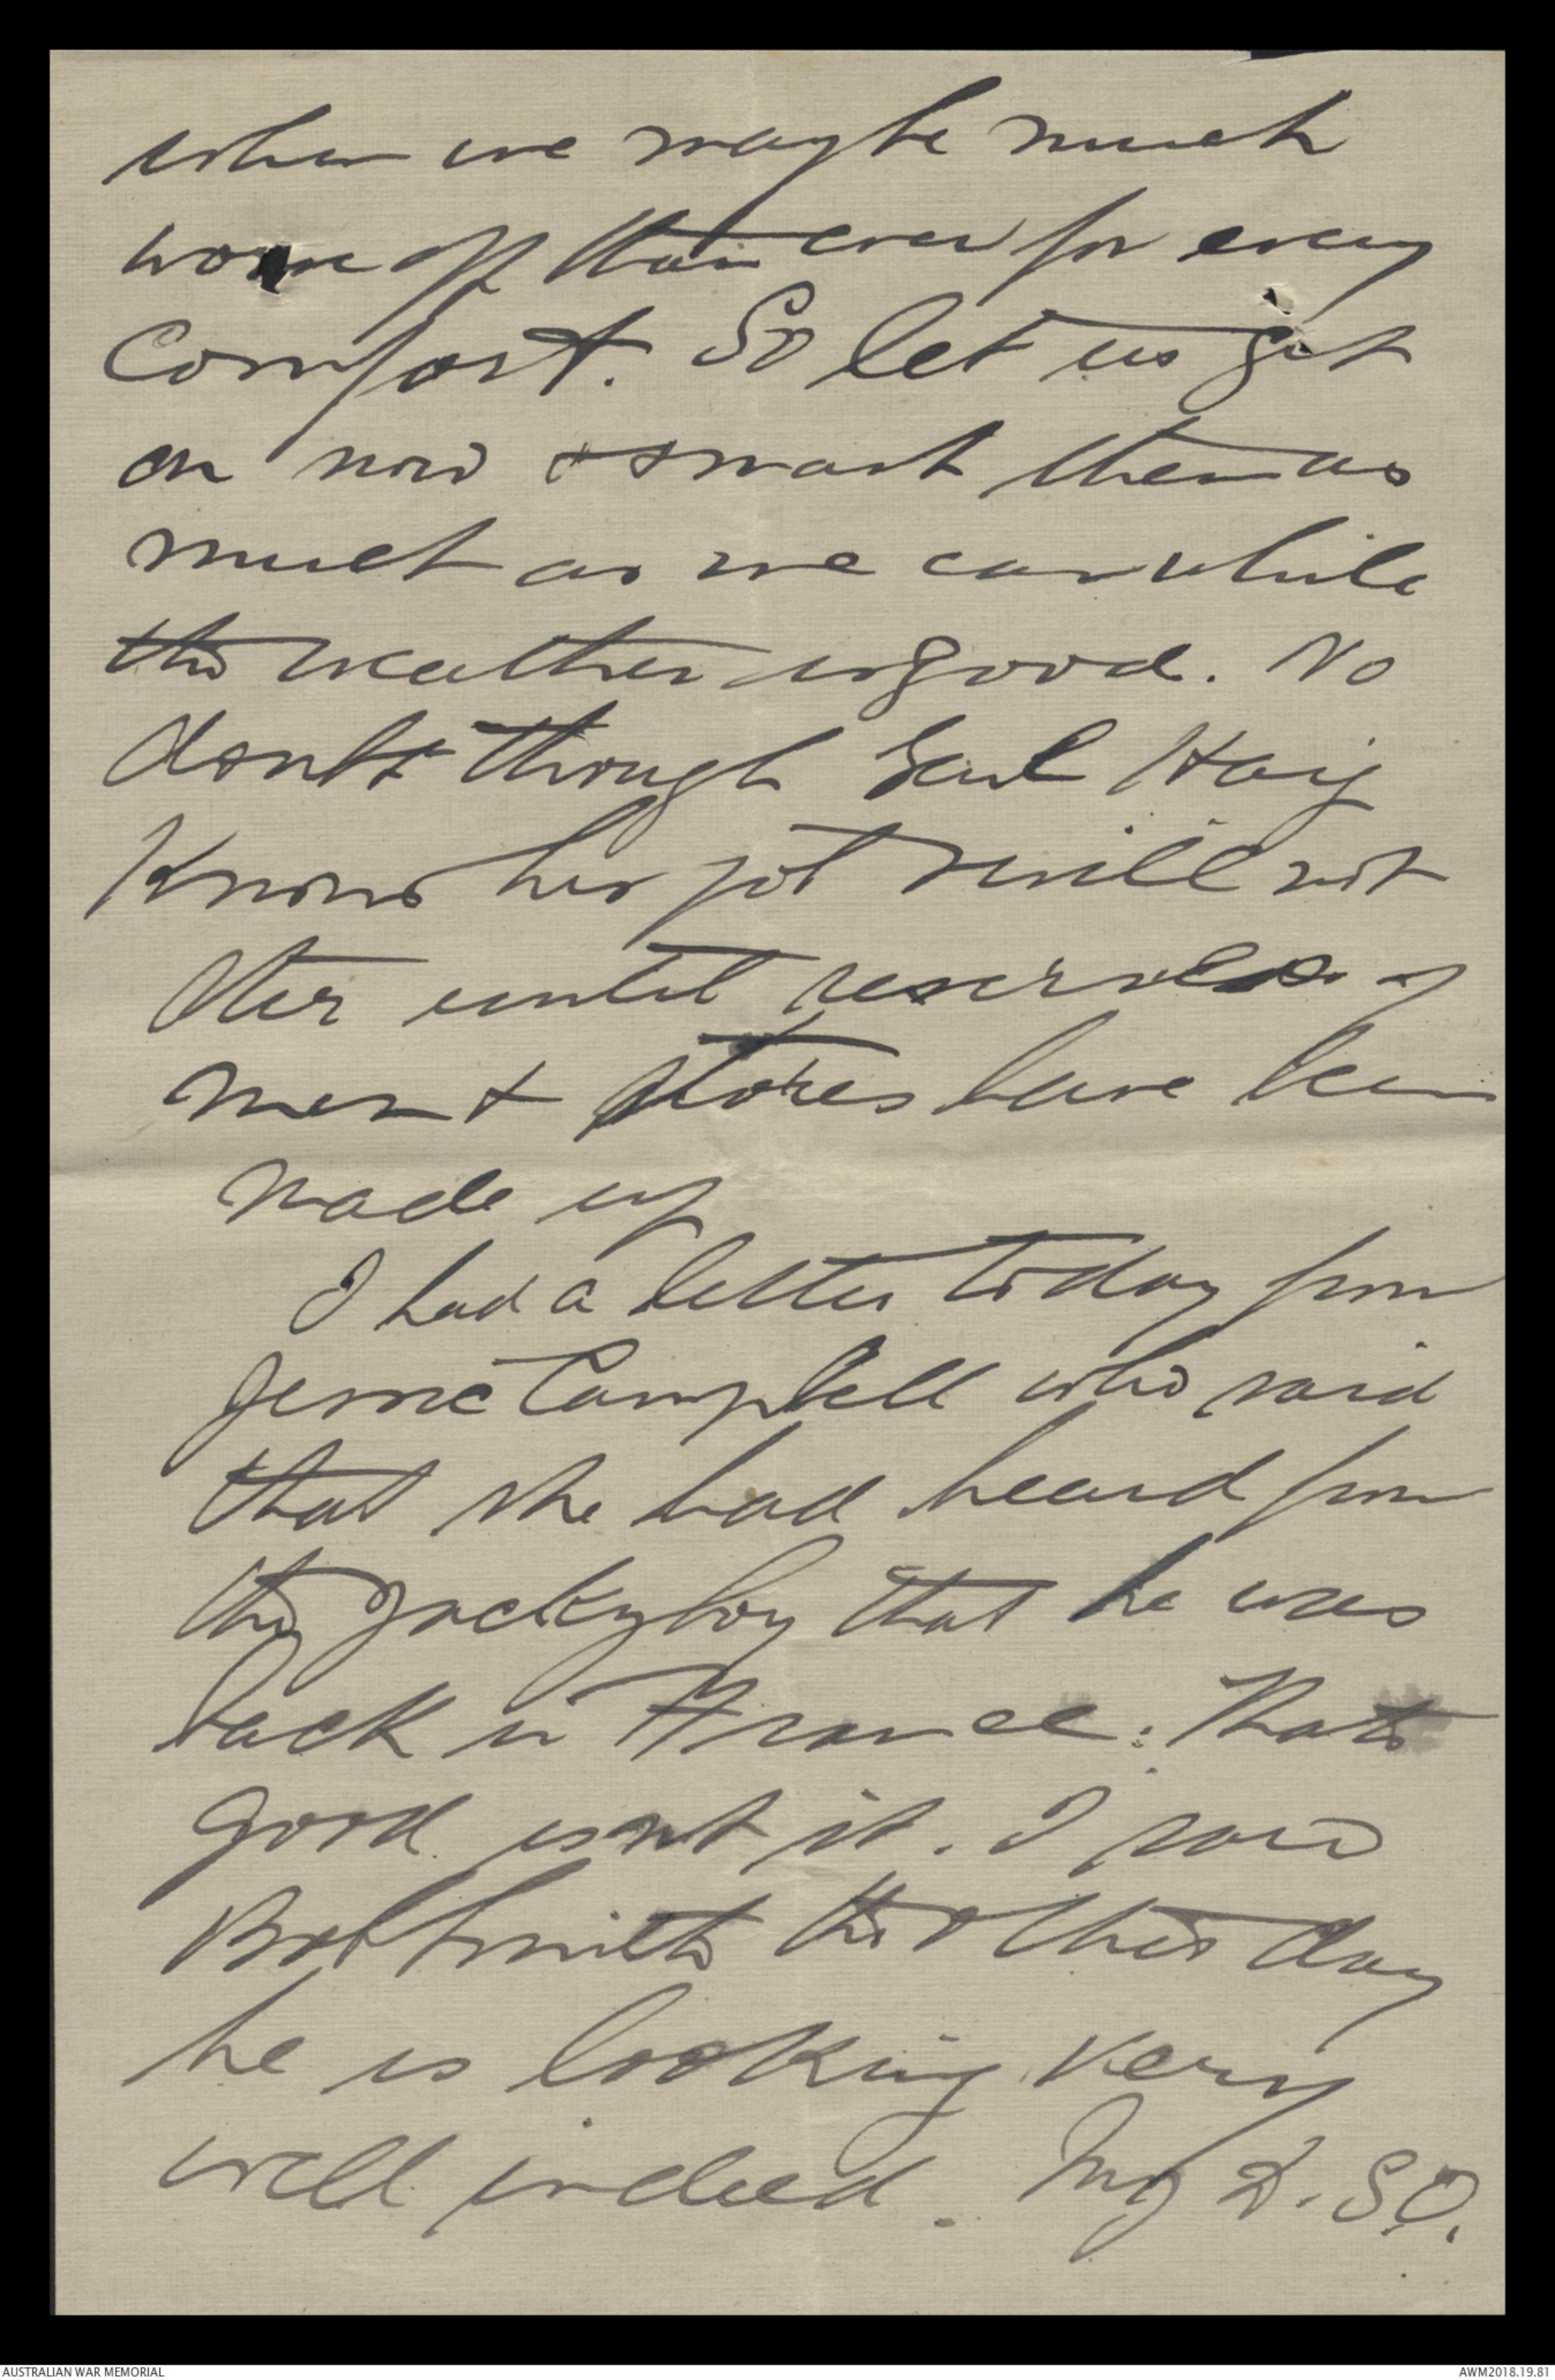 when we maybe much
worse off than ever for every
comfort. So let us get
on now & smash them as
much as we can while
the weather is good. No
doubt though Genl Haig
Knows his job & will not
stir until reserves of
men & stores have been
made up
I had a letter today from
Jessie Campbell who said
that she had heard from
thy Jackyboy that he was
back in France. Thats
good isnt it. I saw
Bob Smith the other day
he is looking very
well indeed. My D.S.O.
AUSTRALIAN WAR MEMORIAL
AWM2018.19.81